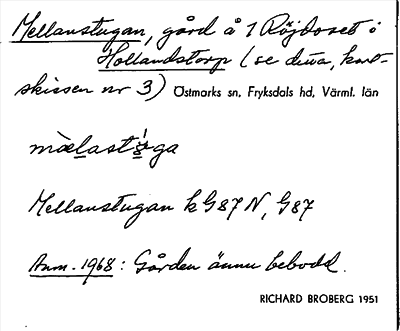 Mellanstugan, gård å 1 Röjdoset i
Hollandstorp (se denna, kart-
skissen nr 3) Östmarks sn, Fryksdals hd, Värml. län
Mellanstugan k G87 N, G87
Anm. 1968: Gården ännu bebodd.
RICHARD BROBERG 1951